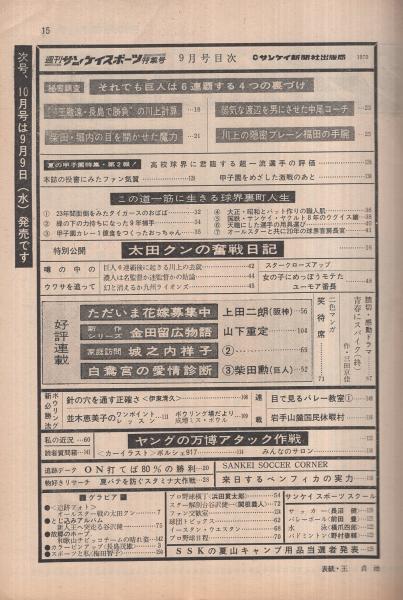 15
週刊サンケイスポーツ特集号 9月号目次 ©サンケイ新聞社出版局 1970
次号、10月号は9月9日(水)発売です
秘密調査 それでも巨人は6連覇する4つの裏づけ
“王敬遠・長島で勝負”の川上計算 18
弱気な渡辺を男にさせた中尾コーチ 23
“柴田・堀内の目を開かせた魔力 21
川上の隠密ブレーン福田の手腕 25
夏の甲子園特集・第2報! 高校球界に君臨する超一流選手の評価
本誌の投書にみたファン気質
甲子園をめざした激戦のあと
この道一筋に生きる球界裏町人生
① 23年間面倒をみたタイガースのおばば 32
② 縁の下の力持ちになった9年捕手 34
③ 甲子園カレー1億食をつくったおっちゃん 35
④ 大正・昭和とバット作りの職人肌 38
⑤ 国鉄・サンケイ・ヤクルト8年のウグイス嬢 38
⑥ 天職にした選手の用具運び 40
⑦ オールスターと共に20年の球界言論長 41
特別公開 太田クンの奮戦日記
噂の中の
ウワサを追って
巨人6連覇後に起きる川上の去就 42
選人は名監督か迷監督かの結論 44
幻と消えるか九州ライオンズ 45
スタークローズアップ
女の子にめっぽうモテた
ユーモア番長 48
好評連載
ただいま花嫁募集中 上田二朗(阪神) 56
新作シリーズ 金田留広物語 山下重定 104
家庭訪問 城之内祥子 ②
白鷺宮の愛情診断 ③柴田勲(巨人) 52
二色マンガ
笑待席 71
踏切・感動ドラマ
青春にスパイク(終)
作・三田京佳 87
ボウリング新必勝法
針の穴を通す正確さ<伊東清久> 108
並木恵美子のワンポイントレッスン 111
ボウリング場だより 109
成増ミス・ボウル
連載
目で見るバレー教室①
岩手山麓国民休暇村
私の近況 60
読者質問箱 141
ヤングの万博アタック作戦
<カーイラスト>ポルシェ917 114
みんなのサロン
追跡データ ON打てば80%の勝利 20
物好きリサーチ 夏バテを防ぐスタミナ大作戦
SANKEI SOCCER CORNER
来日するベンフィカの実力
■グラビア■
●<追跡フォト>
オールスター戦の太田クン 7
●とじ込みアルバム
新人王へ突走る谷沢健一 75
●故郷のホープ
和歌山チビッコチームの晴れ姿 142
●カラーピンアップ(長島茂雄) 3
●スポーツと私(梅田智子)
プロ野球横丁(浜田貫太郎) 54
スター解剖台谷沢健一(関根義人) 72
ファン交歓室
球団トピックス 62
イースタン・ウエスタン 68
プロ野球日程 70
サンケイスポーツスクール
サッカー(長沼健)
バレーボール(前田豊)
水泳(横爪四郎)
バドミントン(野村泰輔)
SSKの夏山キャンプ用品当選者発表
表紙・王貞治